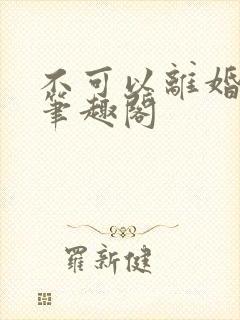 不可以離婚
筆趣閣
羅新健